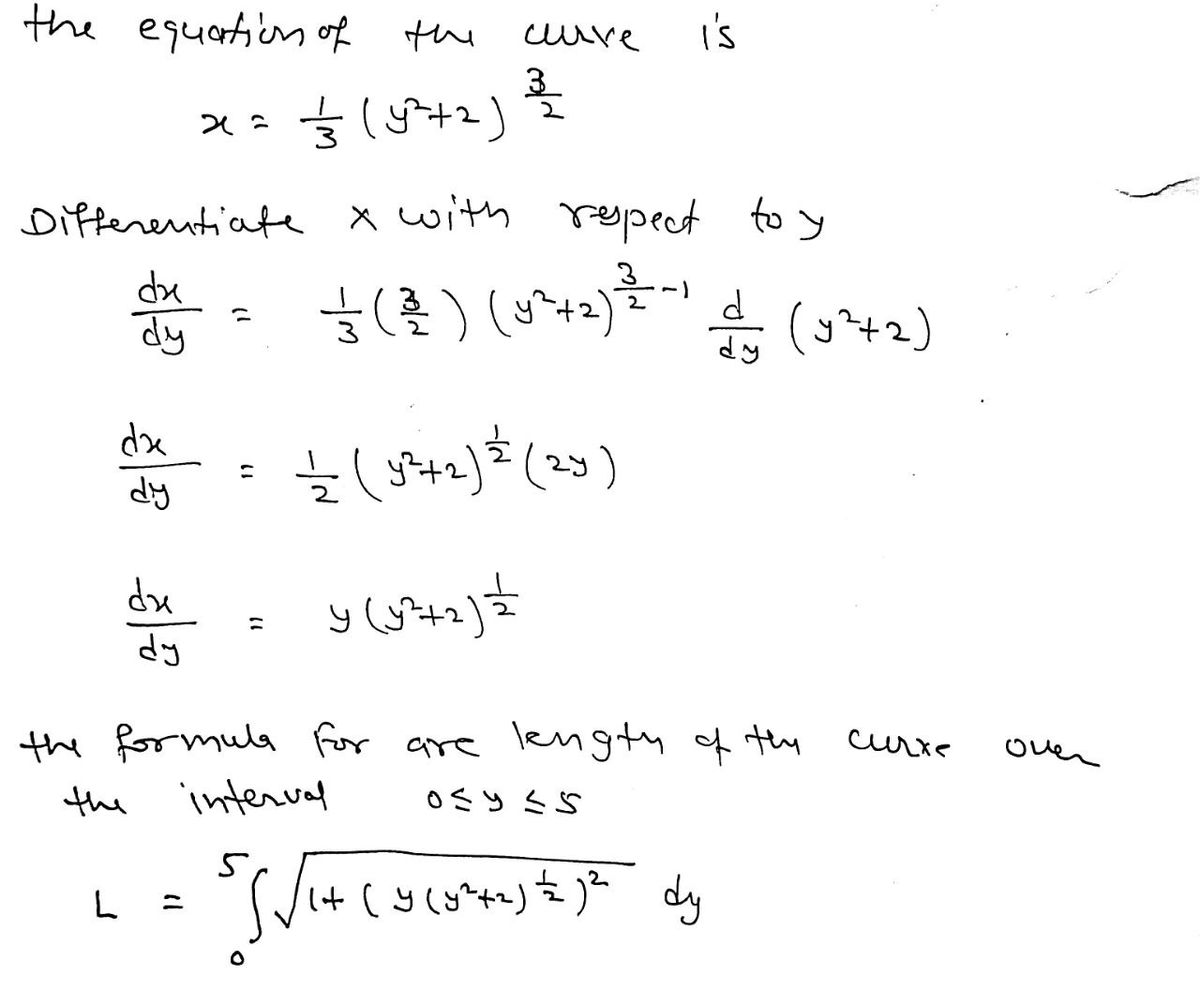 the equation of the curve is
x = 1/3 (y²+2)^(3/2)
Differentiate x with respect to y
dx/dy = 1/3 (3/2) (y²+2)^(3/2 -1) d/dy (y²+2)
dx/dy = 1/2 (y²+2)^(1/2) (2y)
dx/dy = y (y²+2)^(1/2)
the formula for arc length of the curve over
the interval 0≤y≤5
L = ∫₀⁵ √(1+ (y(y²+2)^(1/2))²) dy